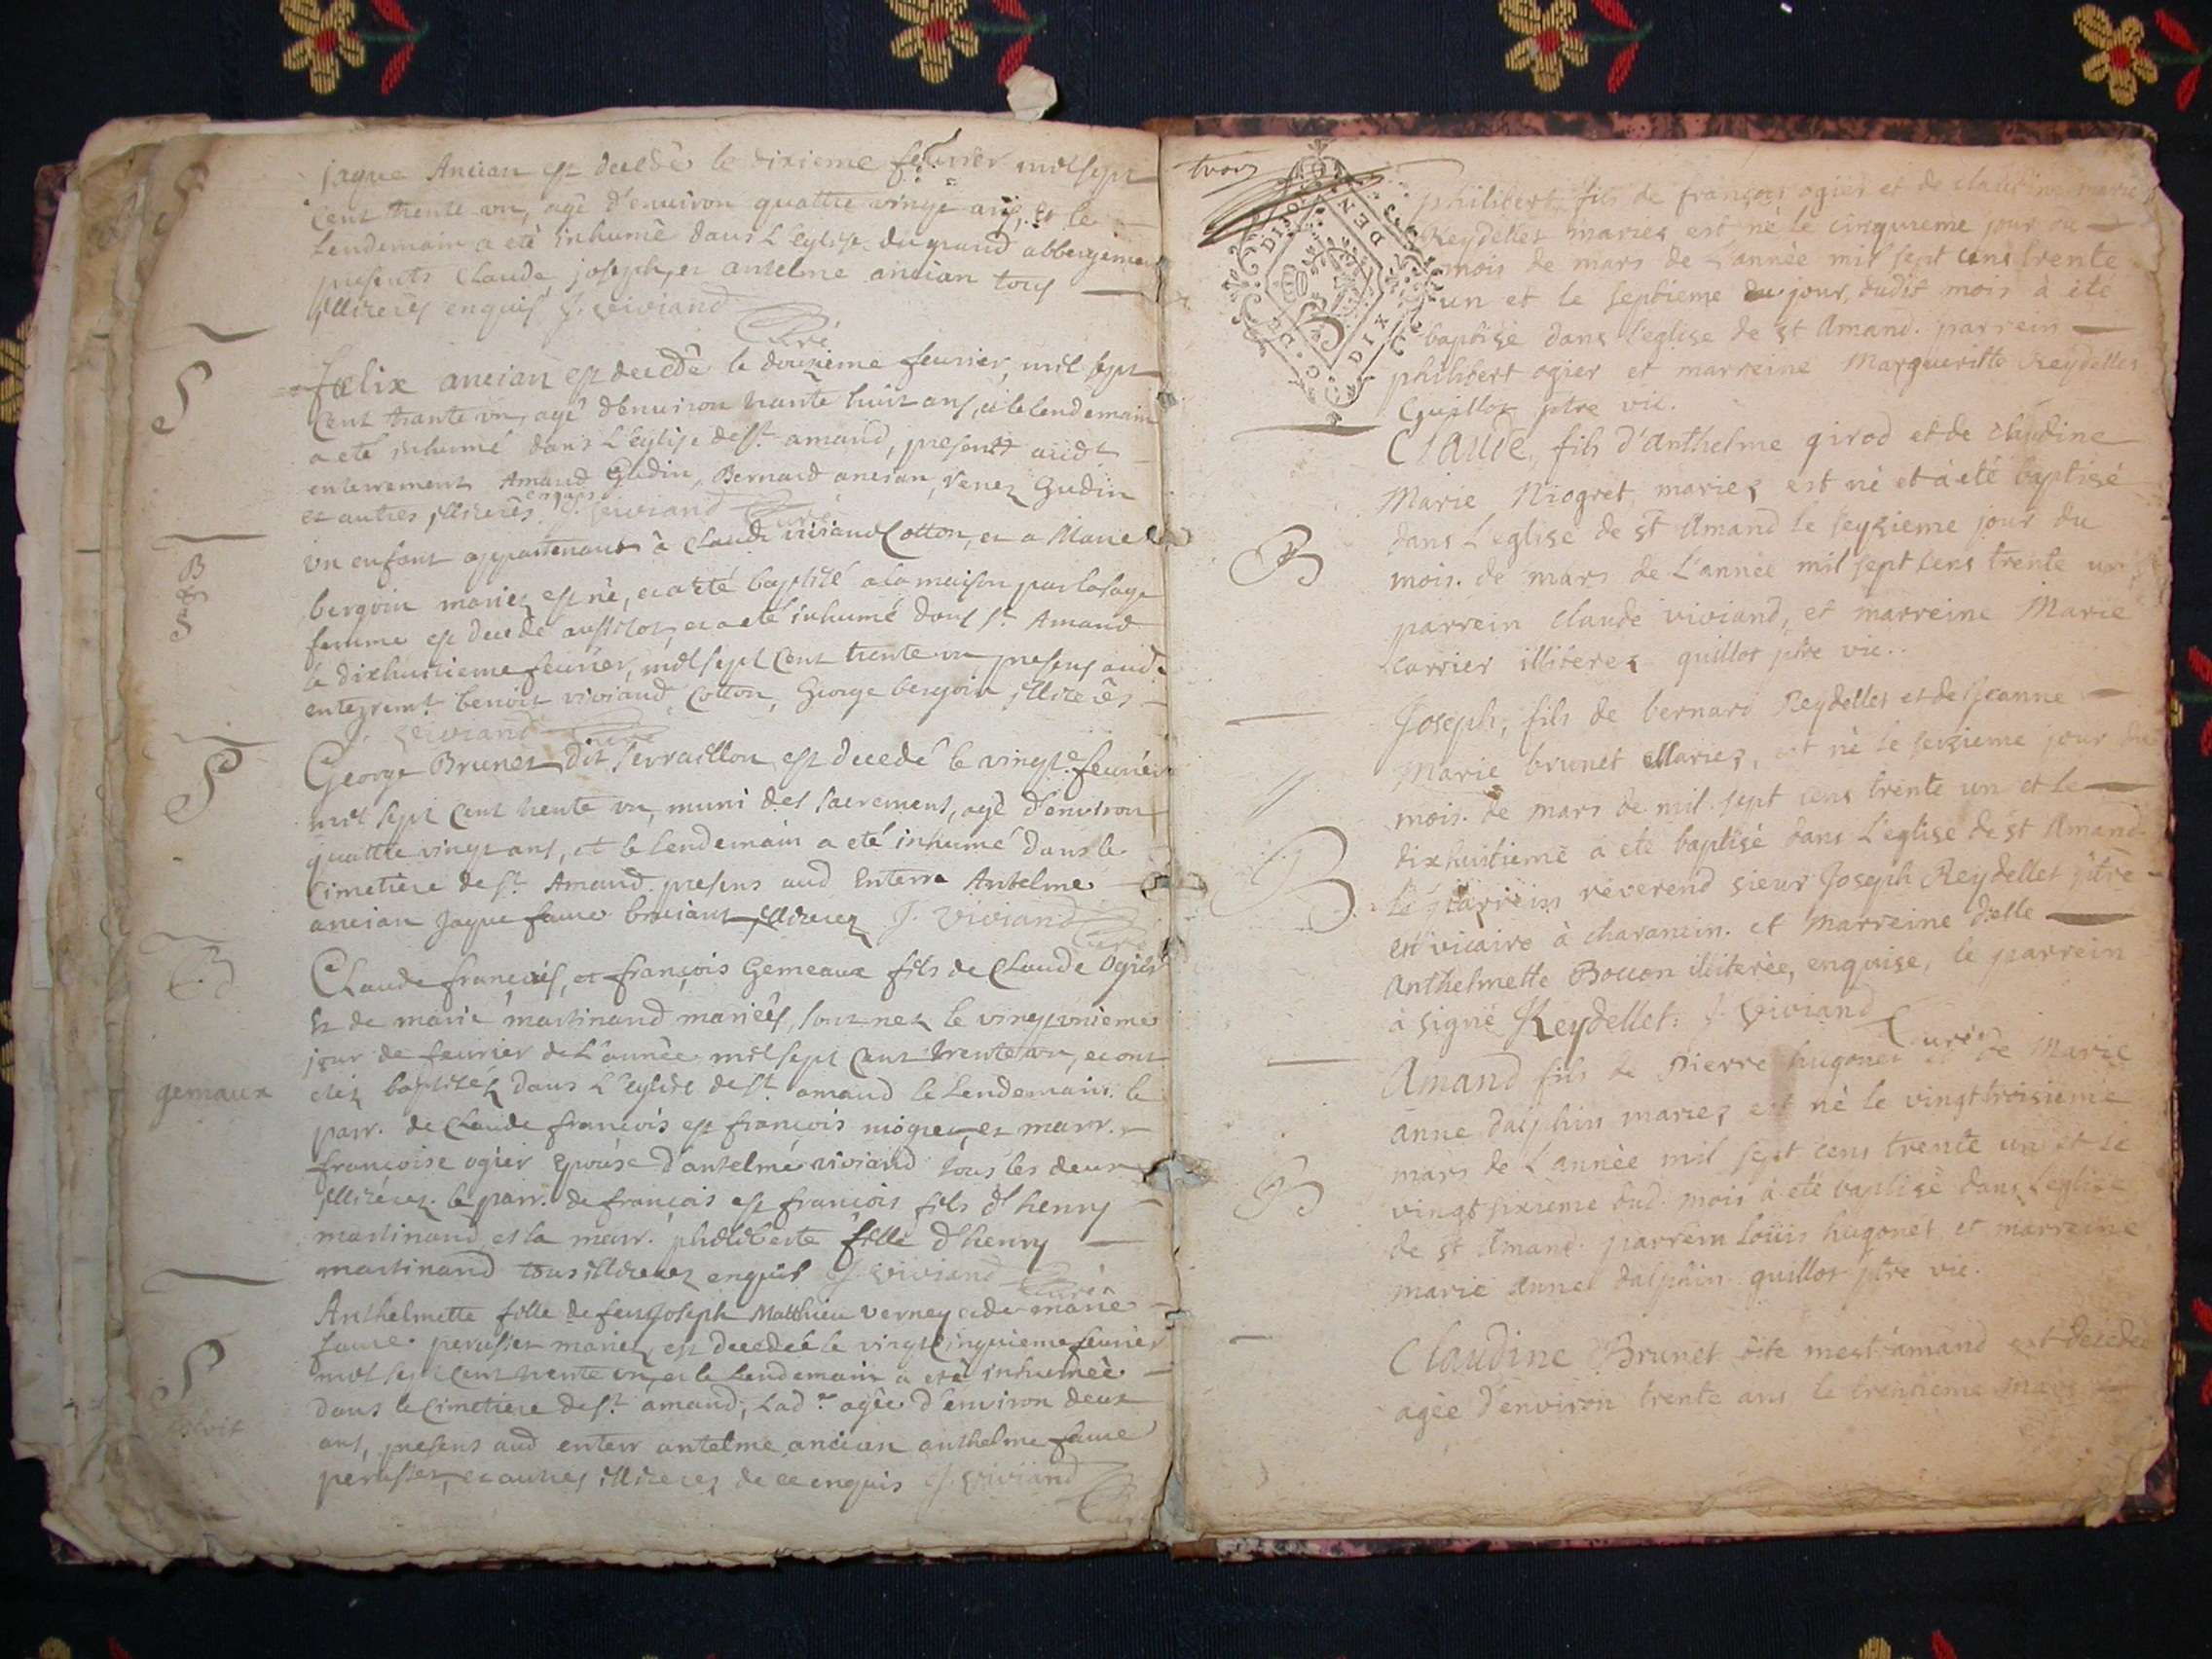 jaque Ancian est decedé le dixieme feuvrier mil sept
cent trente un, agé d'environ quattre vingt ans, et le
Lendemain a eté inhumé dans L'eglise du grand abbergement
presents Claude, joseph, et antelme ancian tous
illiterés enquis J. Viviand
Curé
S
Fœlix ancian est decedé le douzieme feuvrier, mil sept
cent trante un, agé d'environ trante huit ans, et le lendemain
a eté inhumé dans L'eglise de St amand, presents aud.
enterrement Amand Gudin, Bernard ancian, Gudin
et autres illiterés enquis J. Viviand Curé
B
et
S
un enfant appartenant à Claude viviand Cotton, et a Marie
bergoin mariez est né, et a eté baptisé a la maison par la sage
femme est decedé aussitot, et a eté inhumé dans St Amand
le dixhuitieme feuvrier, mil sept cent trente un presens aud.
enterremt benoit viviand Cotton, George bergoin illiterés
J. Viviand Curé
S
George Brunet dit Serraillon est decedé le vingt feuvrier
mil sept cent trente un, muni des sacremens, agé d'environ
quattre vingt ans, et le Lendemain a eté inhumé dans le
Cimetiere de St Amand. presens aud Enterre Antelme
ancian Jaque faure illiterez J. Viviand
Curé
B
gemaux
Claude françois, et françois Gemeaux fils de Claude Ogier
Et de marie martinand mariés, sont nez le vingt unieme
jour de feuvrier de L'année mil sept cent trente un, et ont
etéz baptisés dans L'eglise de St amand le Lendemain. le
parr. de Claude françois est françois niogret, et marr.
françoise ogier epouse d'antelme viviand tous les deux
illiterez. le parr. de françois est françois fils d'henry
martinand et la marr. philiberte fille d'henry
martinand tous illiterez enquis J. Viviand
Curé
S
Anthelmette fille de feu Joseph Matthieu Verney et de marie
faure perusset mariez, est decedée le vingt cinquieme feuvrier
mil sept cent trente un, et le Lendemain a eté inhumée
dans le Cimetiere de St amand, Lad.e agée d'environ deux
ans, presens aud enterr antelme ancian anthelme faure
perusset, et autres illiterez de ce enquis J. Viviand
Curé
trois
GEN DE DIJON
DIX D
philibert, fils de françois ogier et de claudine marie
Reydellet mariez est né le cinquieme jour du
mois de mars de L'année mil sept cens trente
un et le septieme du jour dudit mois à eté
baptisé dans L'eglise de St Amand. parrein
philibert ogier et marreine Margueritte Reydellet
Guillot ptre vic.
B
Claude, fils d'Anthelme girod et de claudine
Marie Niogret mariez est né et à eté baptisé
dans L'eglise de St Amand le seyzieme jour du
mois. de mars de L'année mil sept cens trente un
parrein claude viviand, et marreine Marie
carrier illiterez guillot ptre vic..
B
Joseph, fils de bernard Reydellet et de Jeanne
Marie brunet Mariez, est né le seizieme jour du
mois. de mars de mil. sept cens trente un et le
dixhuitieme a eté baptisé dans L'eglise de St Amand
le parrein reverend sieur Joseph Reydellet ptre
et vicaire à charancin. et Marreine delle
Anthelmette Bouon illiterée, enquise, le parrein
à signé Reydellet. J. Viviand
Curé
B
Amand fils de Pierre hugonet et de Marie
anne dalphin mariez est né le vingt troisieme
mars de L'année mil sept cens trente un et le
vingt sixieme dud. mois à eté baptisé dans L'eglise
de St Amand. parrein Loüis hugonet et marreine
marie anne dalphin guillot ptre vic.
Claudine Brunet dite mest amand est decedée
agée d'environ trente ans le trentieme Mars